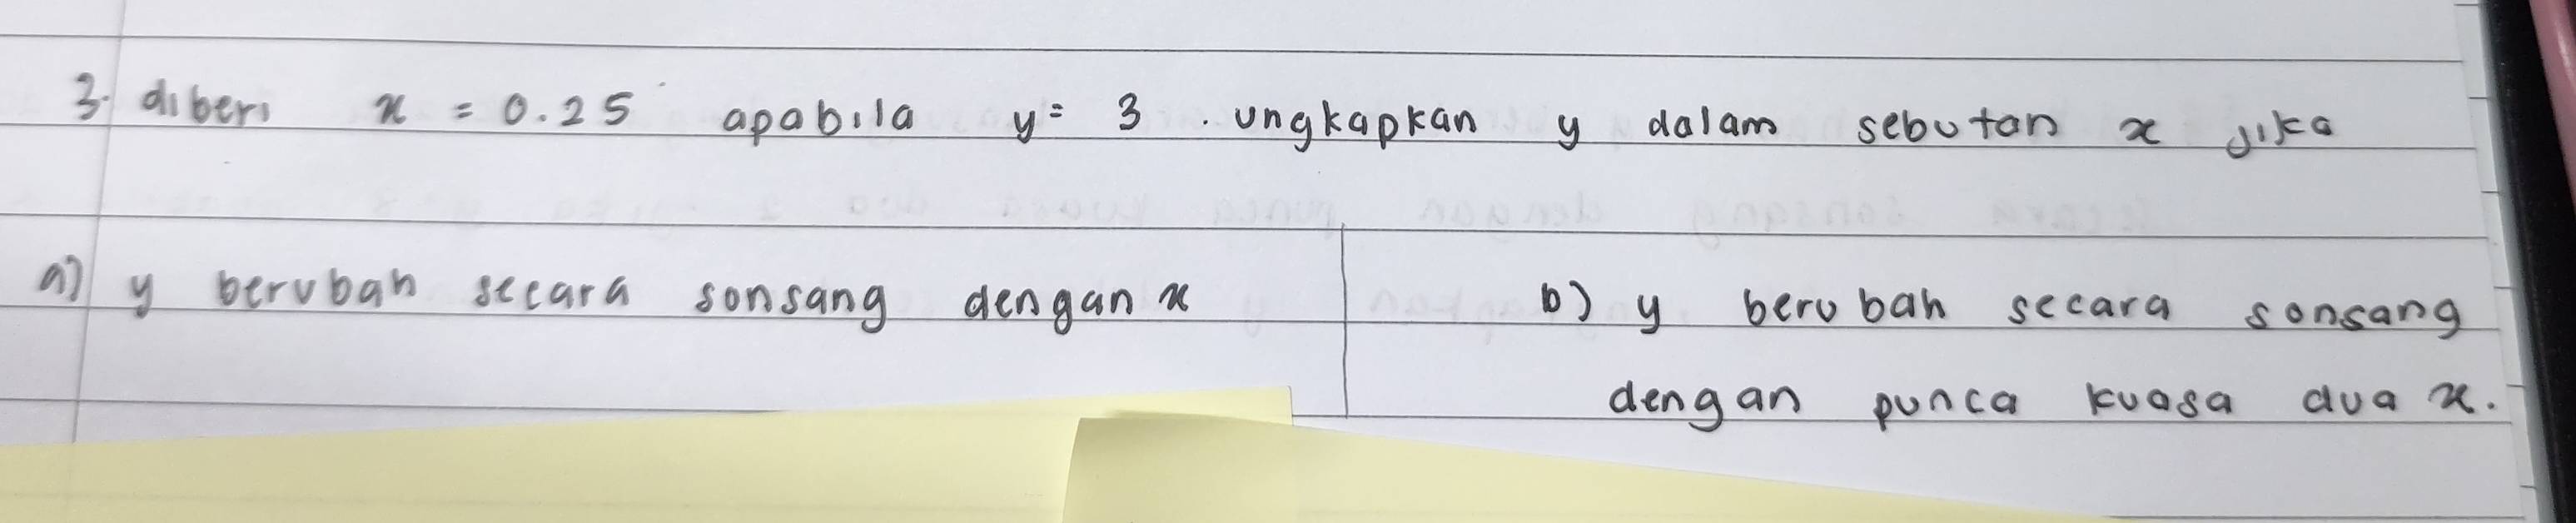 3. diberi x = 0.25 apabila y = 3 . ungkapkan y dalam sebutan x jika
a) y berubah secara sonsang dengan x
b) y berubah secara sonsang
dengan punca kuasa dua x.